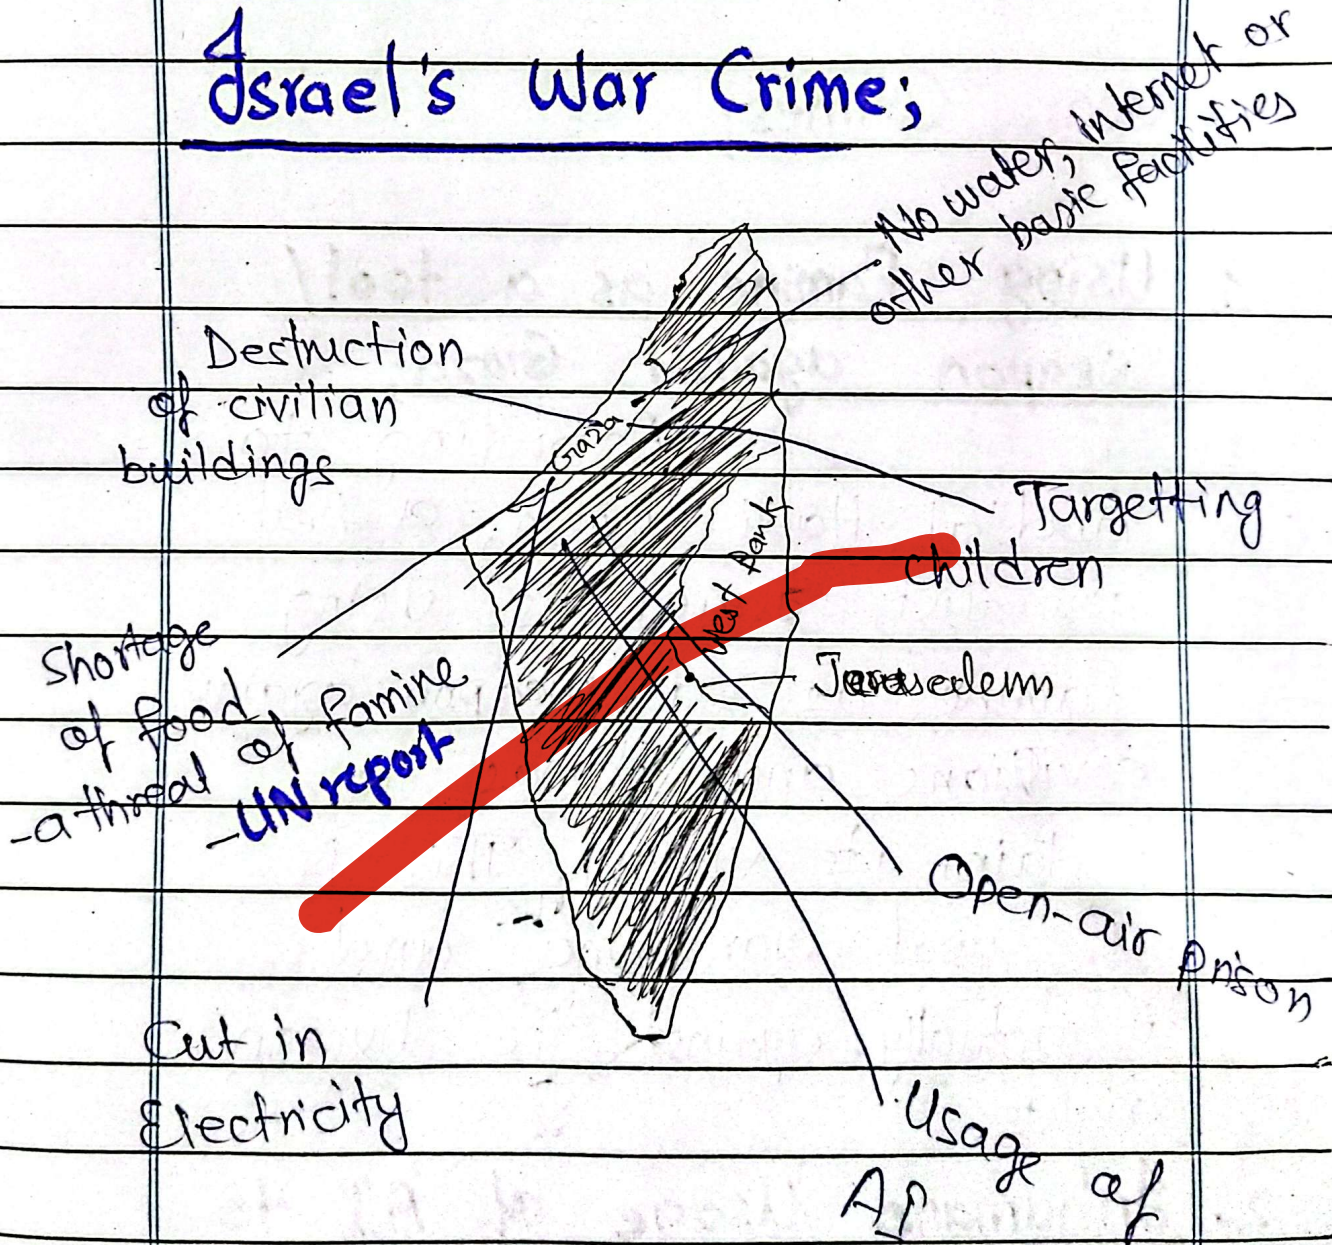 Israel's War Crime;
No water, internet or
other basic facilities
Destruction
of civilian
buildings
Gaza
Targetting
children
West Bank
Shortage
of food,
-a threat of famine
-UN report
Jerusalem
Open-air prison
Cut in
Electricity
Usage of
AI